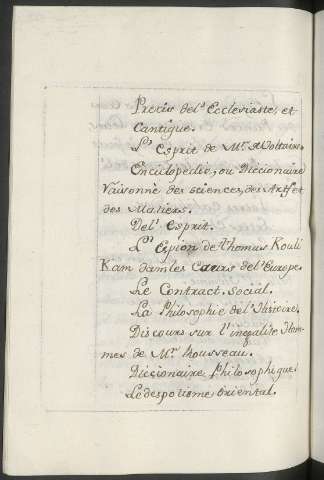 Precis del' Ecclesiaste, et
Cantique.
L' Esprit de Mr. Voltaire.
Enciclopedie, ou Diccionaire
Raisonné des sciences, des Arts et
des Matiers.
Del' Esprit.
L' Espion de Thomas Kouli
Kam dans les Cours del' Europe.
Le Contract Social.
La Philosophie de l' Histoire.
Discours sur l'inegalite Hom-
mes de Mr. Rousseau.
Diccionaire Philosophique.
Le despotisme Oriental.